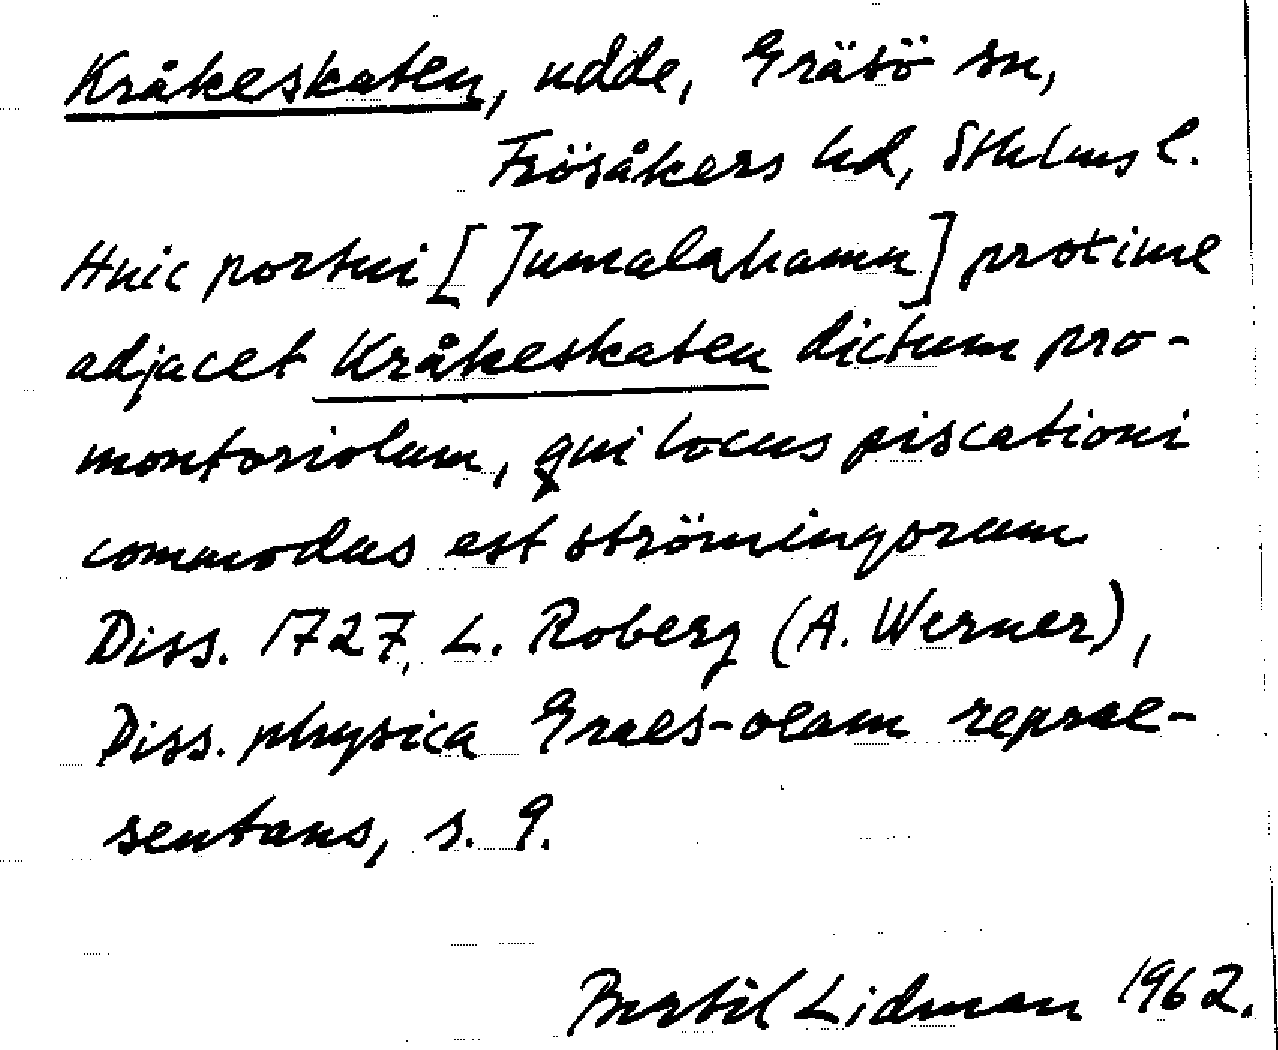 Kråkeskaten, udde, Gräsö sn,
Frösåkers hd, Sthlms l.
Huic portui [Jumalahamn] proxime
adjacet Kråkeskaten dictum pro-
montoriolum, qui locus piscationi
commodus est strömingorum.
Diss. 1727, L. Roberg (A. Werner),
Diss. physica Graes-oeam reprae-
sentans, s. 9.
Bertil Lidman 1962.